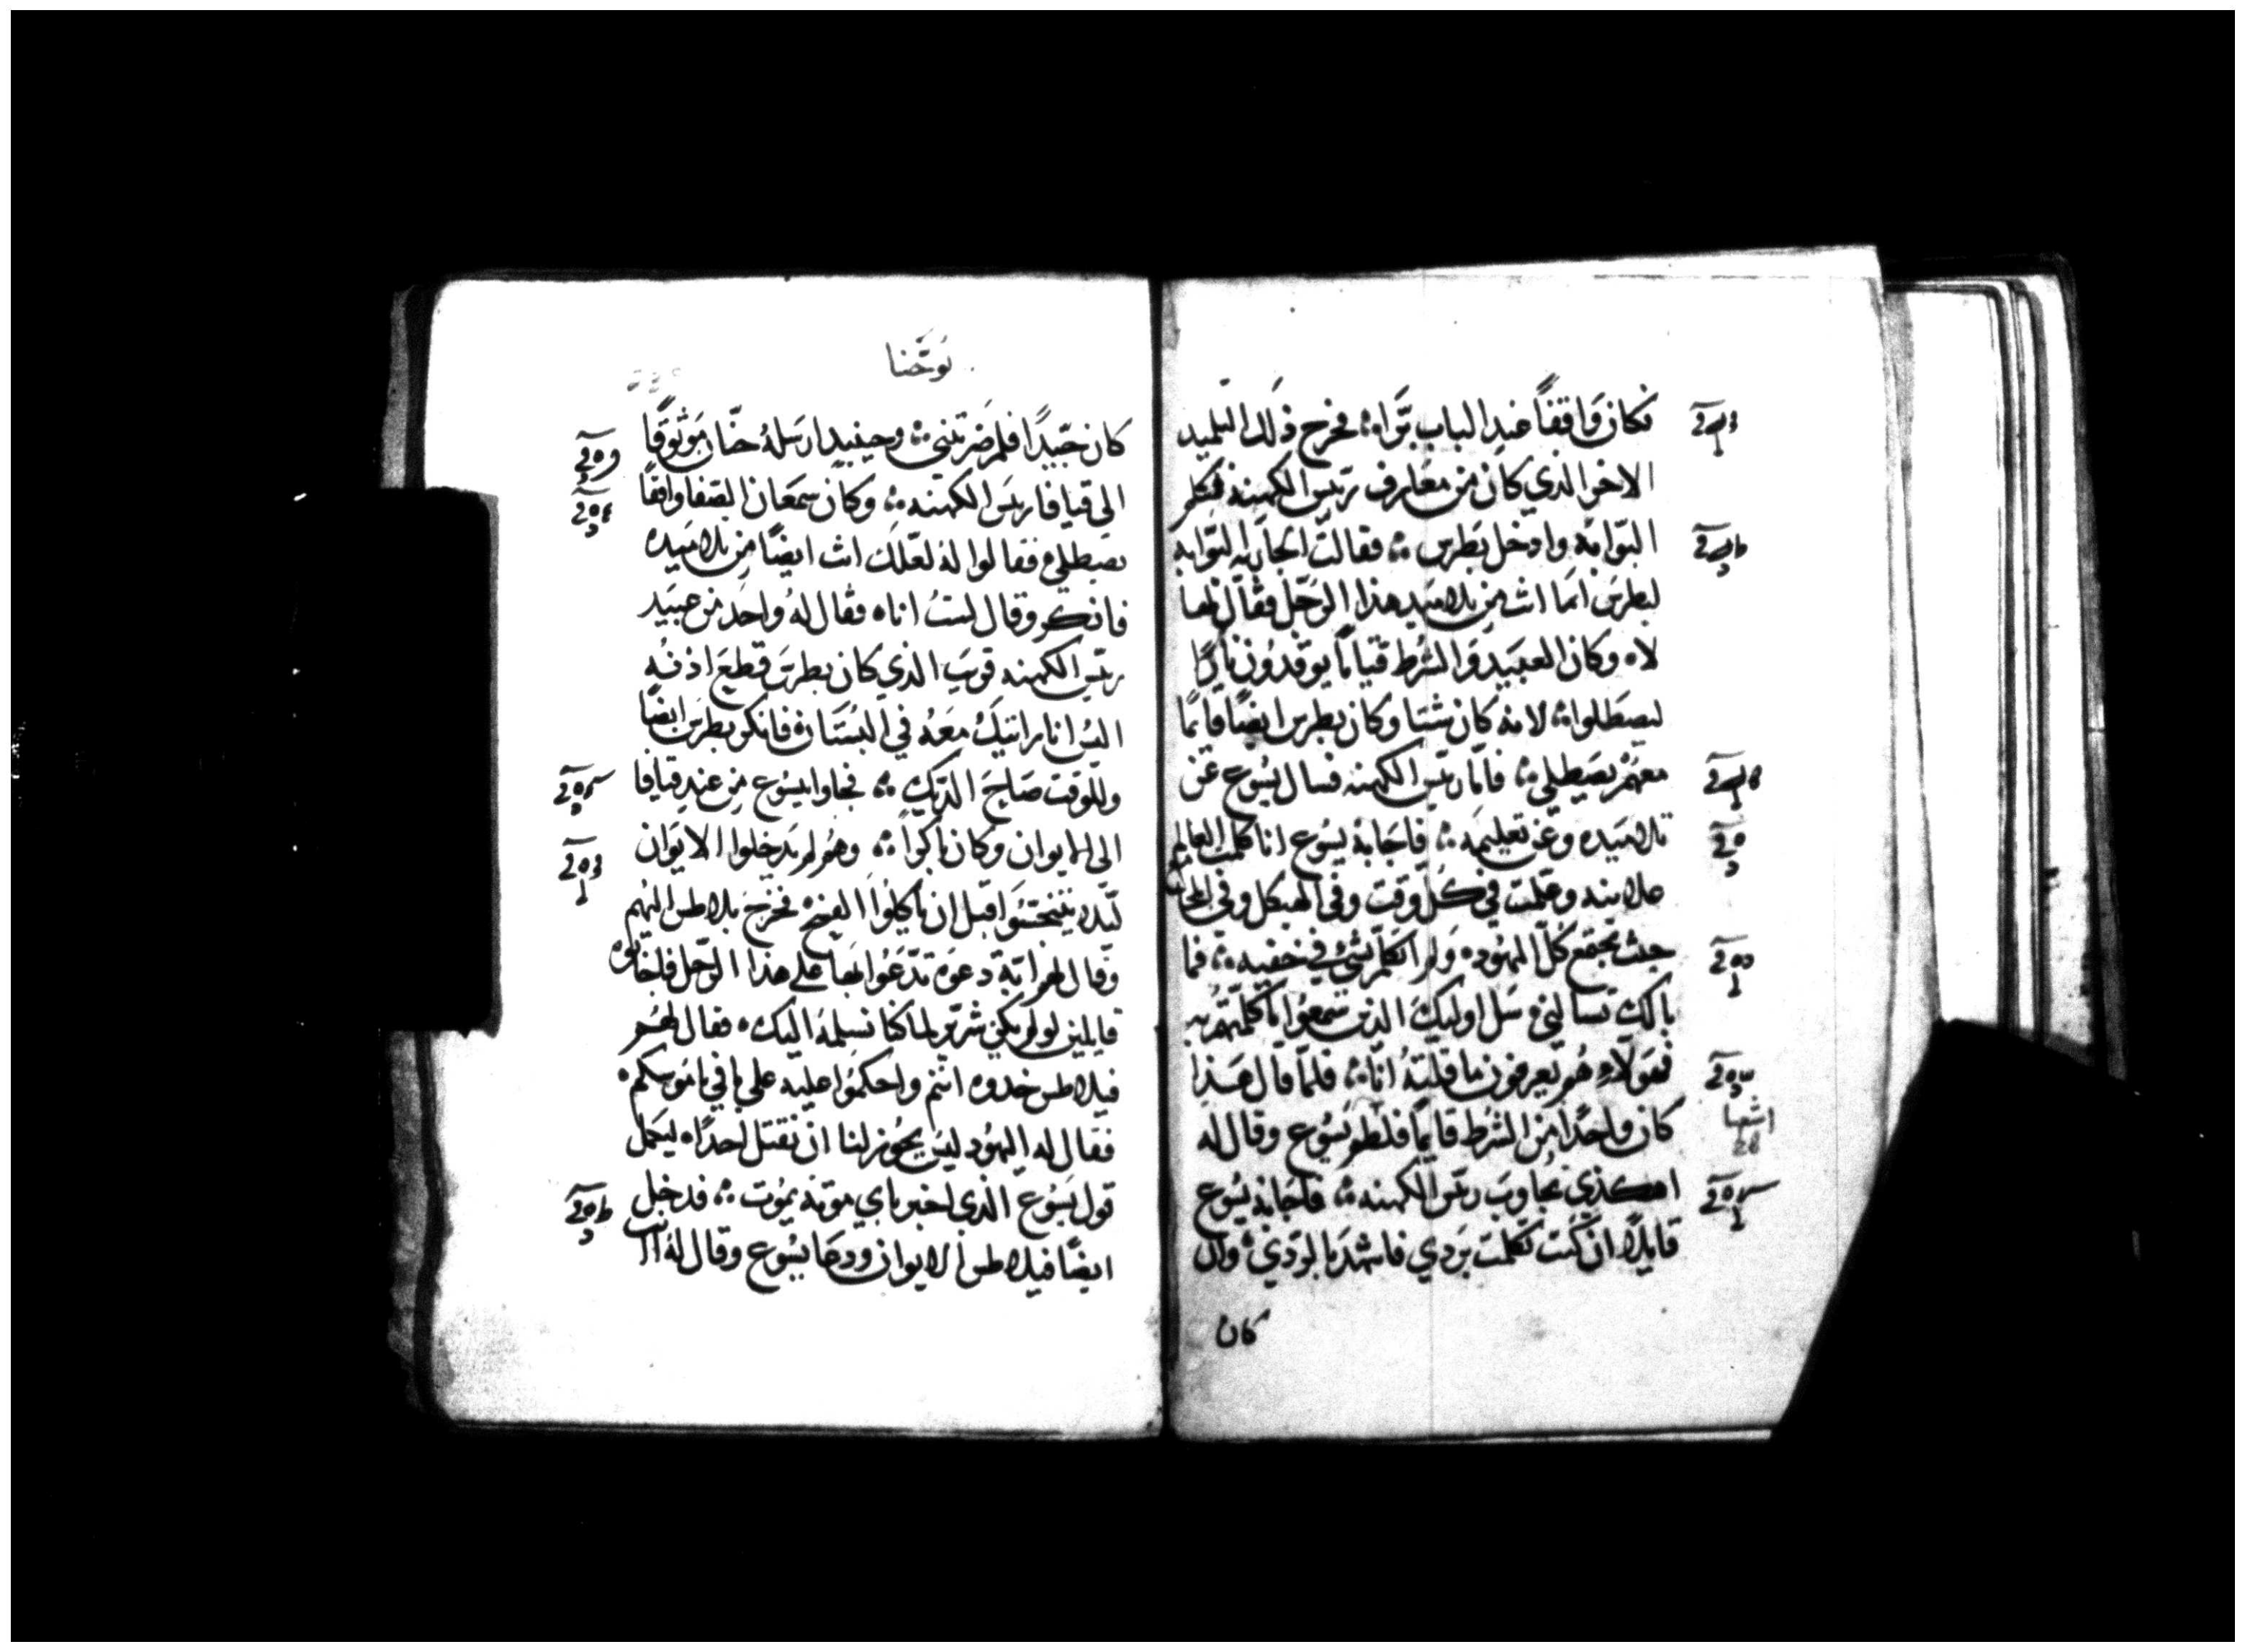 فكان واقفاً عند الباب برّاه فخرج ذلك التلميد
الاخر الذي كان من معارف رييس الكهنه فتكلم
البوابه وادخل بطرس فقالت الجاريه البوابه
لبطرس اما انت من تلاميد هذا الرجل فقال لها
لا وكان العبيد والشرط قياماً يوقدون ناراً
ليصطلوا لانه كان شتا وكان بطرس ايضاً قايماً
معهم يصطلي فامّا رييس الكهنه فسال يسوع عن
تلاميده وعن تعليمه فاجابه يسوع انا كلمت العالم
علانيه وعلمت في كل وقت وفي الهيكل وفي المجامع
حيث يجتمع كل اليهود ولم اتكلم بشي في خفيه فما
بالك تسالني سل اوليك الذين سمعوا ما كلمتهم به
فهولاء هم يعرفون ما قلته انا فلمّا قال هذا
كان واحداً من الشرط قايماً فلطم يسوع وقال له
اهكذي تجاوب رييس الكهنه فاجابه يسوع
قايلاً ان كنت تكلمت بردي فاشهد بالردي وان
كان
اشعيا
يوحنا
كان جيداً فلم ضربتني وحينيد ارسله حنّان موثوقاً
الي قيافا رييس الكهنه وكان سمعان الصفا واقفاً
يصطلي فقالوا له لعلك انت ايضاً من تلاميده
فانكر وقال لست اناه فقال له واحد من عبيد
رييس الكهنه قريب الذي كان بطرس قطع اذنه
اليس انا رايتك معه في البستان فانكر بطرس ايضاً
وللوقت صاح الديك فجاوا بيسوع من عند قيافا
الى الايوان وكان باكراً وهم لم يدخلوا الايوان
ليلا يتنجسوا قبل ان ياكلوا الفصح فخرج بلاطس اليهم
وقال لهم اية دعوه تدّعوا بها على هذا الرجل فاجابوه
قايلين لو لم يكن شرّير لما كنا نسلمه اليك فقال لهم
فيلاطس خدوه انتم واحكموا عليه على ما في ناموسكم
فقال له اليهود ليس يجوز لنا ان نقتل احداً ليكمل
قول يسوع الذي اخبر باي موته يموت فدخل
ايضاً فيلاطس الايوان ودعا يسوع وقال له انت